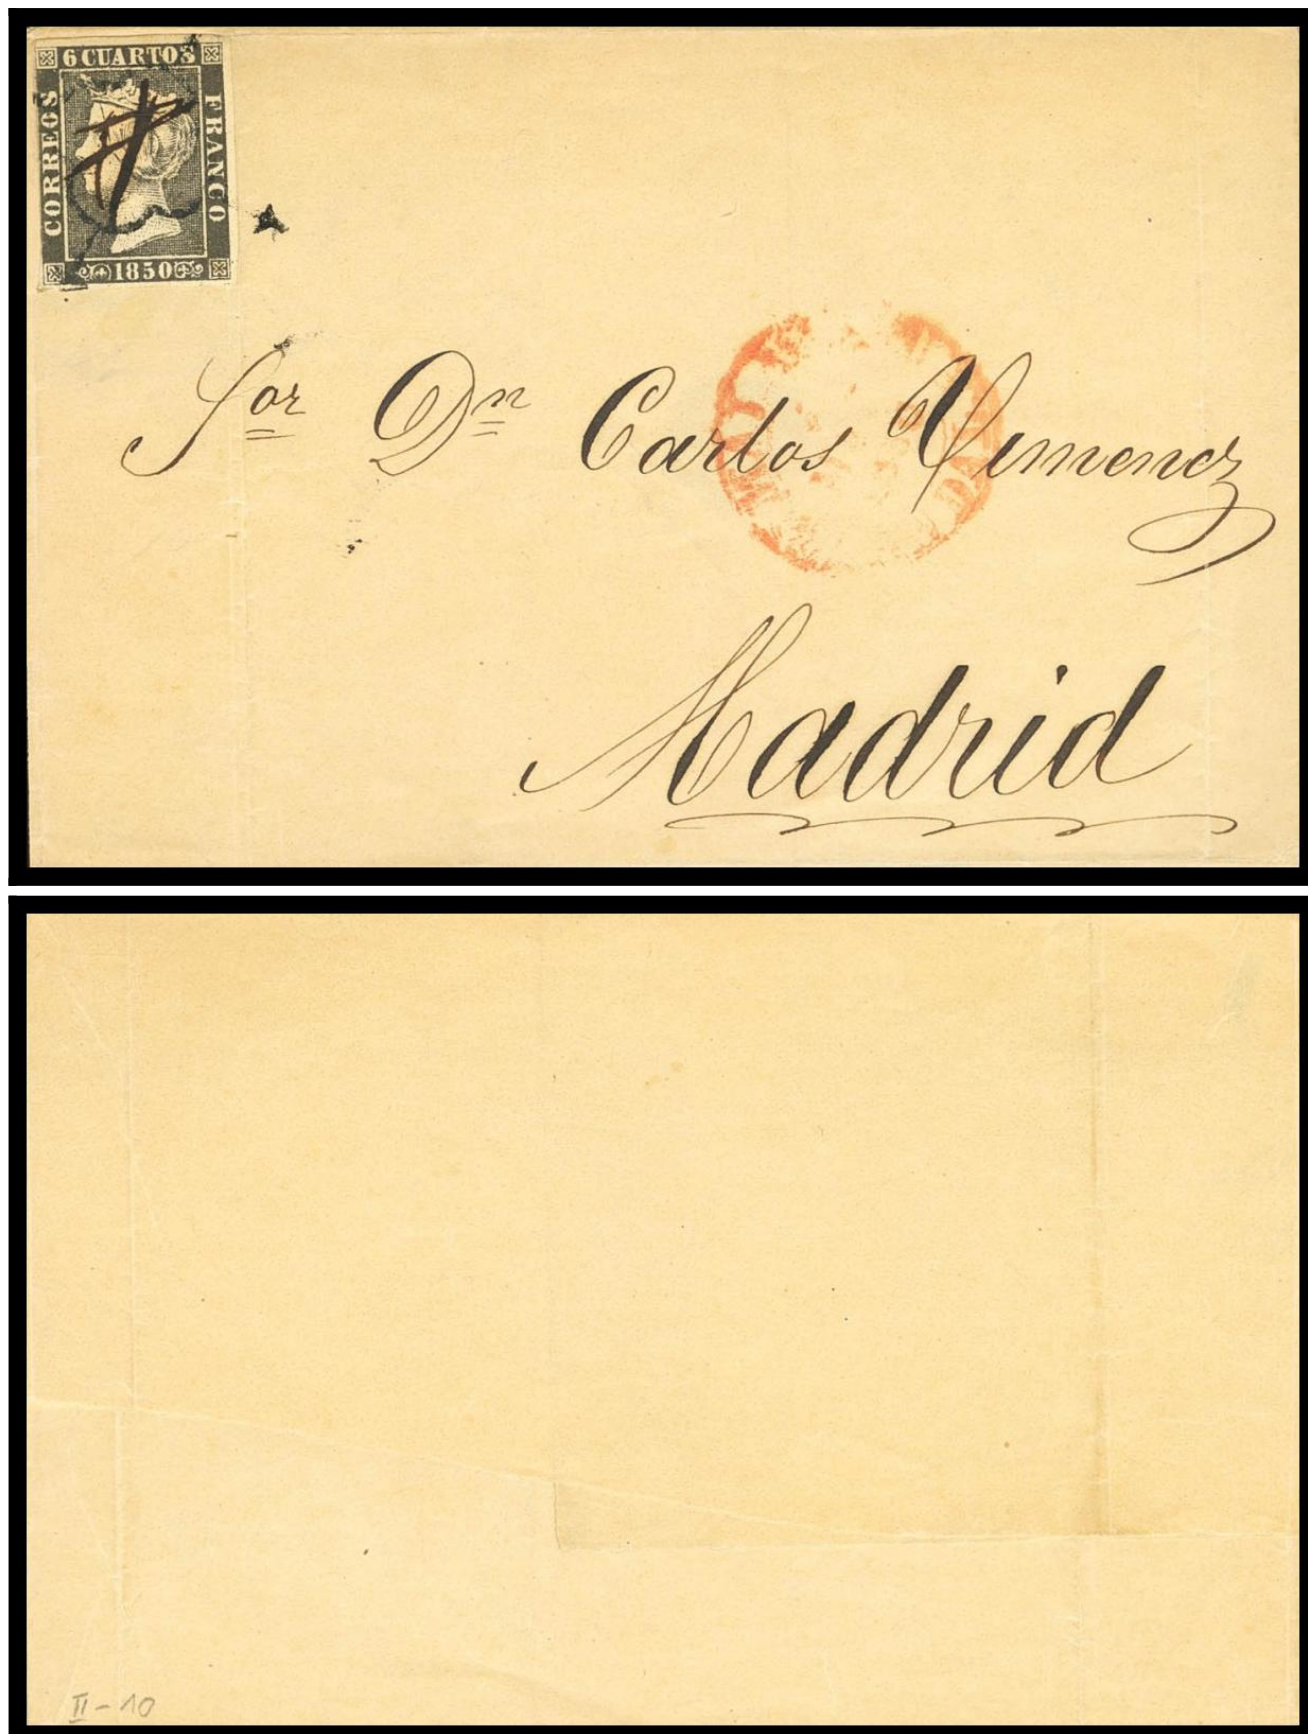 6 CUARTOS
CORREOS
FRANCO
1850
Sor Dn Carlos Ximenez
Madrid
II-10